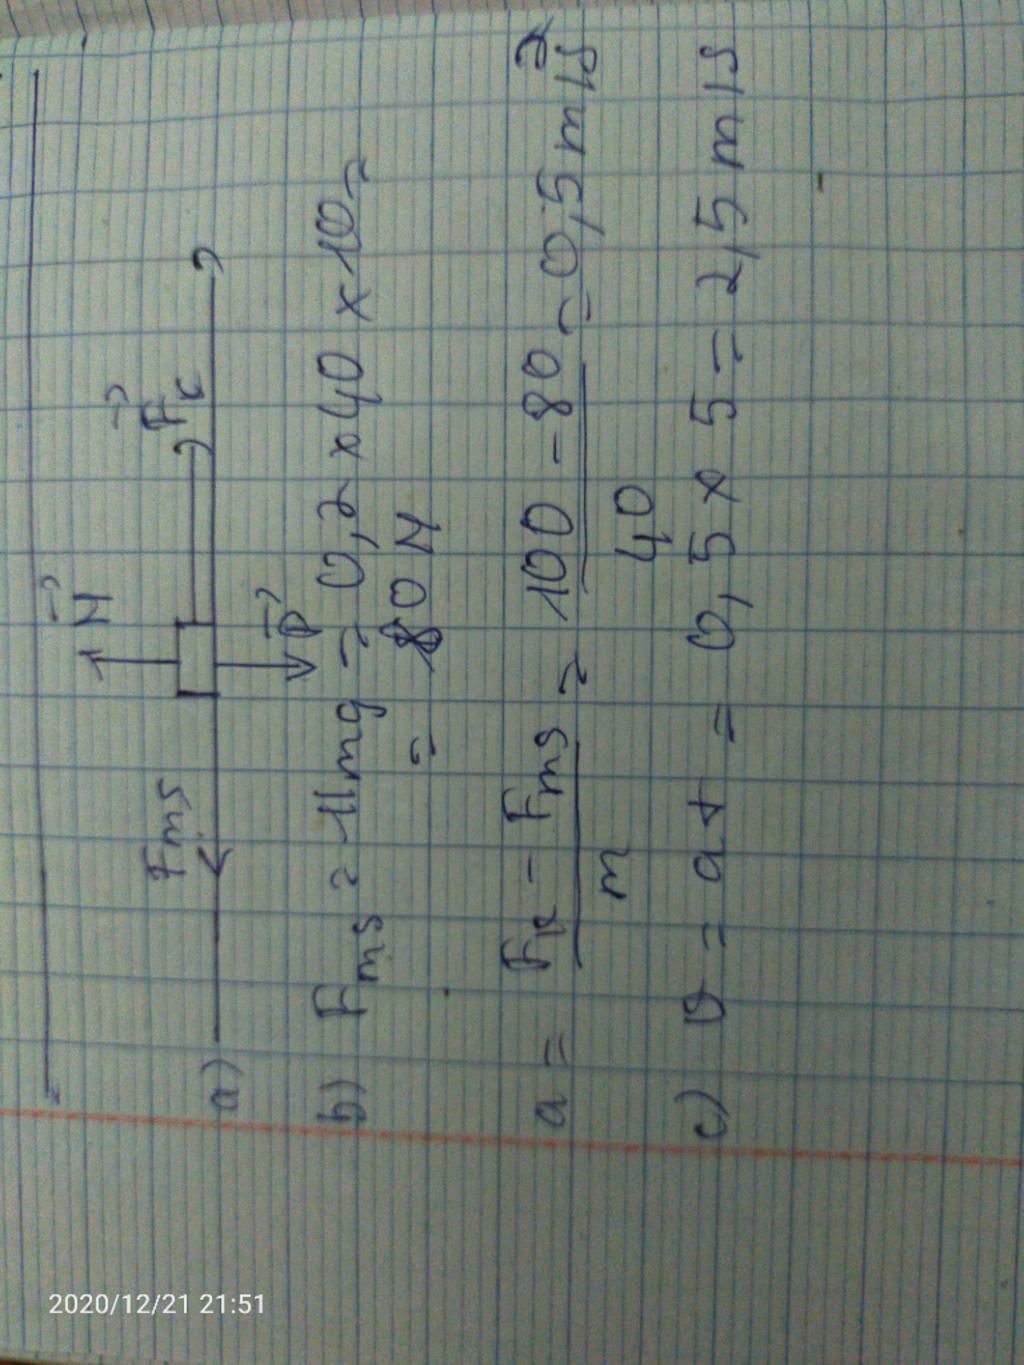 N
Fms
Fk
P
a)
b) Fms = μmg = 0,2 x 40 x 10 =
= 80 N
a = Fk - Fms / m = 100 - 80 / 40 = 0,5 m/s²
c) v = at = 0,5 x 5 = 2,5 m/s
2020/12/21 21:51